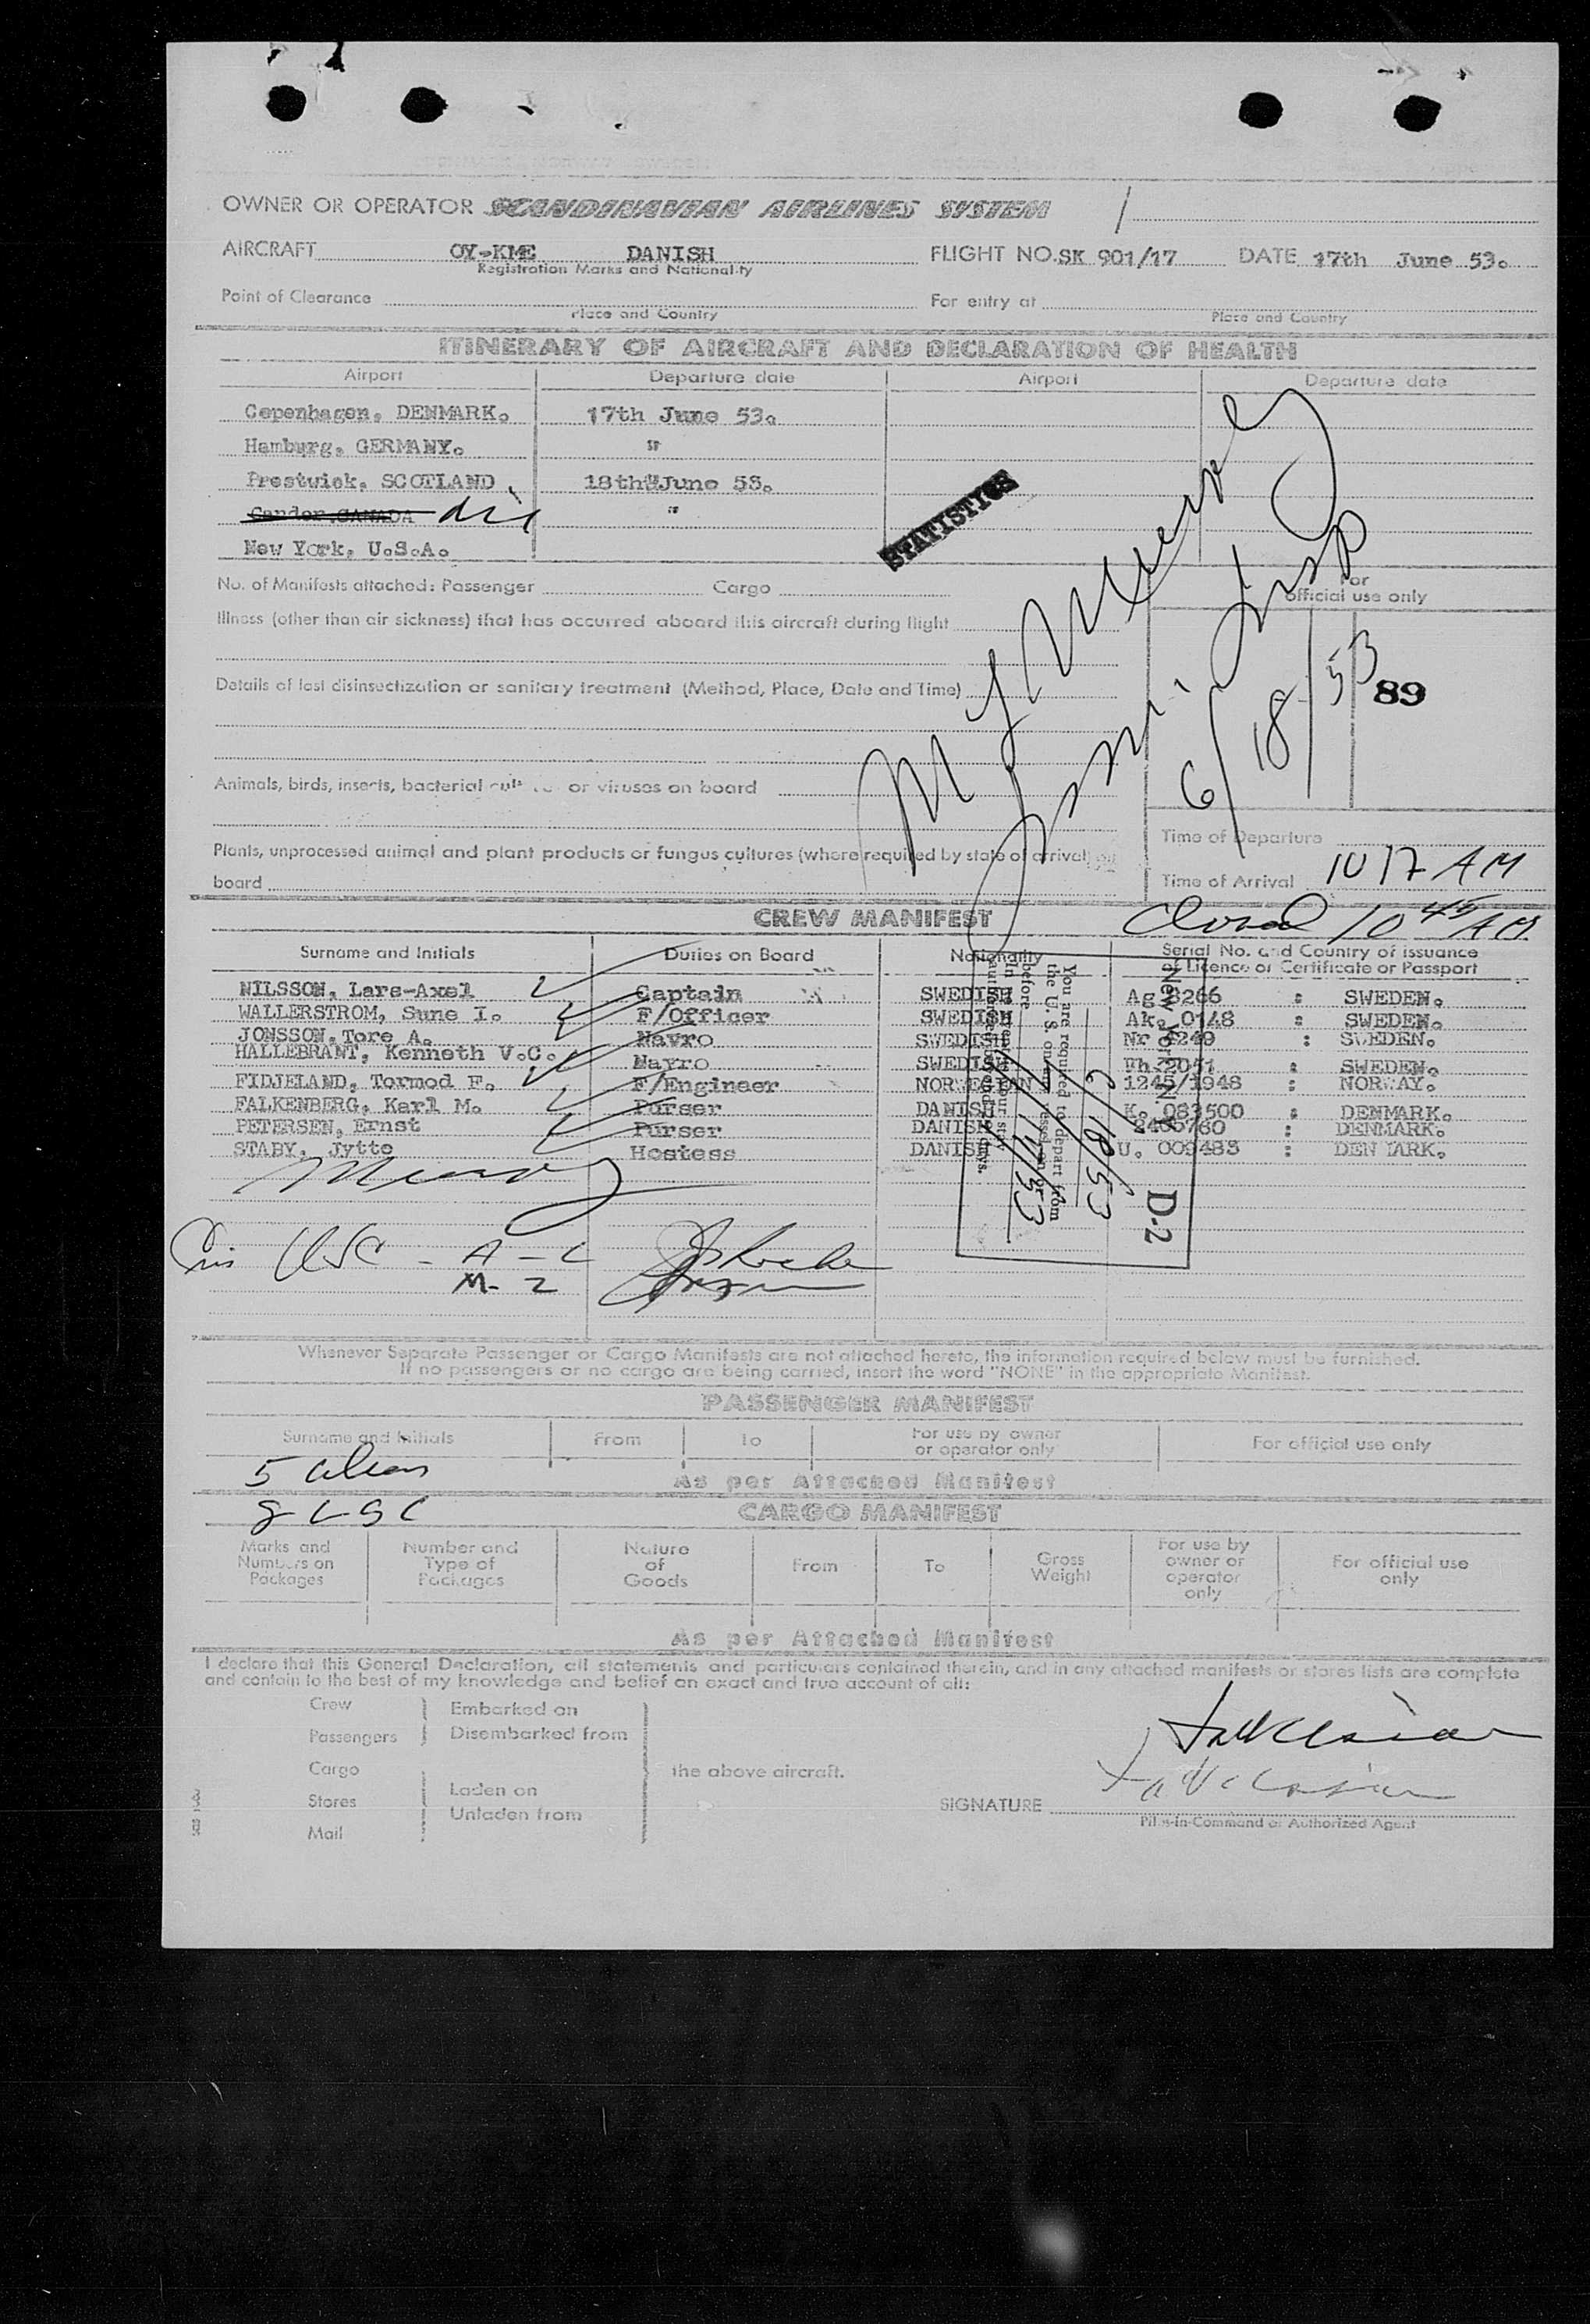 OWNER OR OPERATOR SCANDINAVIAN AIRLINES SYSTEM
AIRCRAFT OY-KME DANISH FLIGHT NO. SK 901/17 DATE 17th June 53.
Registration Marks and Nationality
Point of Clearance For entry at
Place and Country Place and Country
ITINERARY OF AIRCRAFT AND DECLARATION OF HEALTH
Airport Departure date Airport Departure date
Copenhagen, DENMARK. 17th June 53.
Hamburg, GERMANY. "
Prestwick, SCOTLAND. 18th June 53.
Gander, CANADA "
New York, U.S.A.
STATISTICS
No. of Manifests attached: Passenger Cargo
For official use only
Illness (other than air sickness) that has occurred aboard this aircraft during flight
Details of last disinsectization or sanitary treatment (Method, Place, Date and Time)
6/18/53
89
Animals, birds, insects, bacterial or viruses on board
Time of Departure
Plants, unprocessed animal and plant products or fungus cultures (where required by state of arrival) on
board
Time of Arrival 10 17 AM
Closed 10 45 AM
CREW MANIFEST
Surname and Initials Duties on Board Nationality Serial No. and Country of issuance
of Licence or Certificate or Passport
NILSSON, Lars-Axel Captain SWEDISH Ag. 3266 : SWEDEN.
WALLERSTROM, Sune I. F/Officer SWEDISH Ak. 0148 : SWEDEN.
JONSSON, Tore A. Navro SWEDISH Nr 4249 : SWEDEN.
HALLEBRANT, Kenneth V.C. Navro SWEDISH 2051 : SWEDEN.
FIDJELAND, Tormod F. F/Engineer NORWEGIAN 1245/1948 : NORWAY.
FALKENBERG, Karl M. Purser DANISH K. 083500 : DENMARK.
PETERSEN, Ernst Purser DANISH : DENMARK.
STABY, Jytte Hostess DANISH U. 009483 : DENMARK.
New York N.Y. D-2
6/18/53
You are required to depart from
the U. S. on
before
Whenever Separate Passenger or Cargo Manifests are not attached hereto, the information required below must be furnished.
If no passengers or no cargo are being carried, insert the word "NONE" in the appropriate Manifest.
PASSENGER MANIFEST
Surname and Initials From To For use by owner or operator only For official use only
5
As per Attached Manifest
CARGO MANIFEST
Marks and Numbers on Packages Number and Type of Packages Nature of Goods From To Gross Weight For use by owner or operator only For official use only
As per Attached Manifest
I declare that this General Declaration, all statements and particulars contained therein, and in any attached manifests or stores lists are complete
and contain to the best of my knowledge and belief an exact and true account of all:
Crew Embarked on
Passengers Disembarked from
Cargo the above aircraft.
Stores Laden on
Unladen from
Mail
SIGNATURE
Pilot-in-Command or Authorized Agent